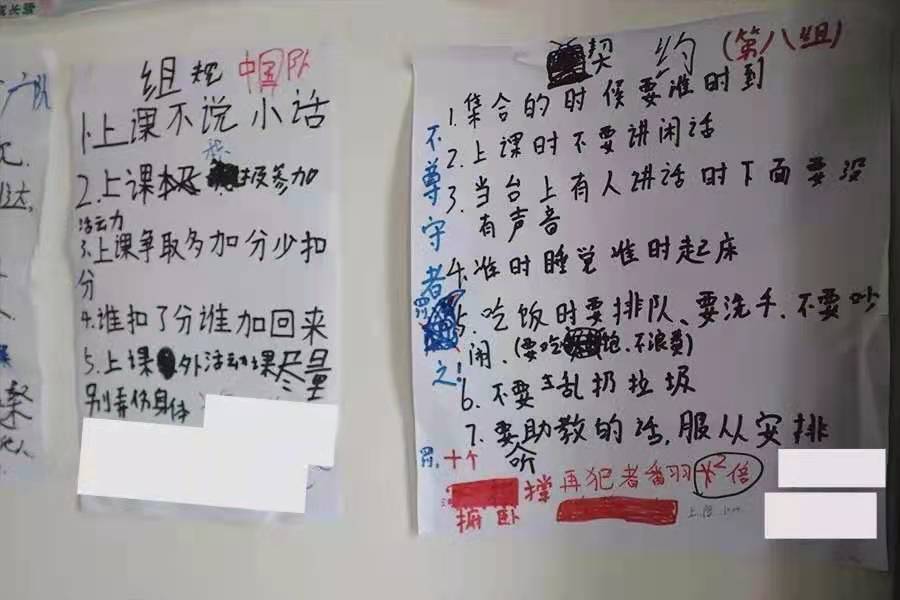 长赞
广队
组规 中国队
1.上课不说小话
积
2.上课极参加
活动
3.上课争取多加分少扣
分
4.谁扣了分谁加回来
5.上课外活动课尽量
别弄伤身体
契约(第八组)
1.集合的时候要准时到
2.上课时不要讲闲话
3.当台上有人讲话时下面要没
有声音
4.准时睡觉准时起床
5.吃饭时要排队、要洗手、不要吵
闹、(要吃饱、不浪费)
6.不要乱扔垃圾
7.要助教的话,服从安排
听
不尊守者罚之!
罚、十个
撑 再犯者番羽 x² 倍
俯卧
上限